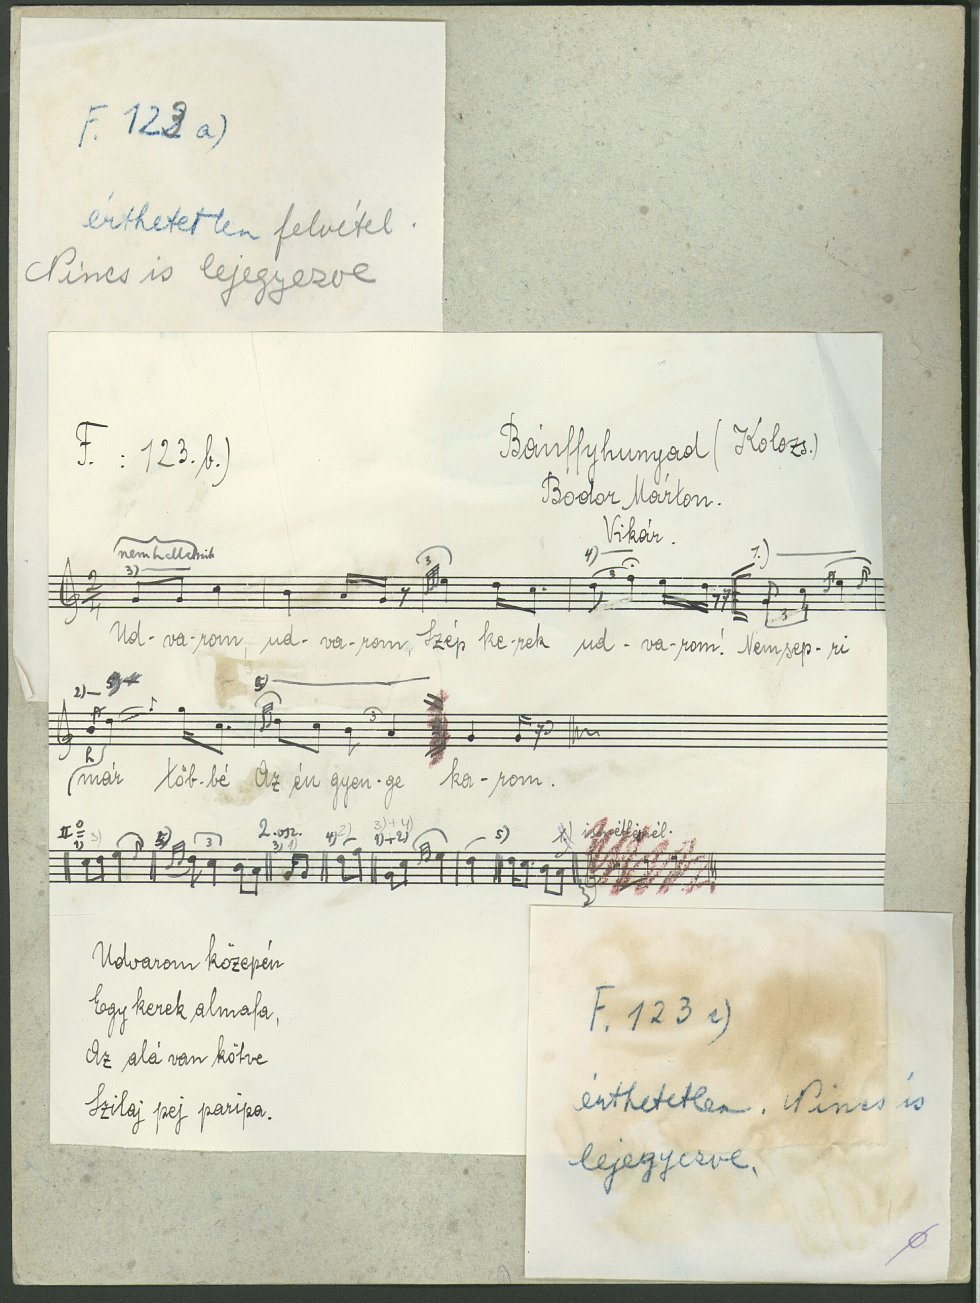 F. 123 a)
érthetetlen felvétel.
Nincs is lejegyezve
F. : 123. b.)
Bánffyhunyad (Kolozs.)
Bodor Márton.
Vikár.
nem hallatszik
3) 3 4) 3 1.)
2/4
Ud - va - rom, ud - va - rom, Szép ke - rek ud - va - rom! Nem sep - ri
3
2) 5)
3
már töb - bé Az én gyen - ge ka - rom.
II 1) 3) 2. vsz. 4) 2) 3) + 4) 5)
3) 1) 1) + 2)
3
Udvarom közepén
Egy kerek almafa,
Az alá van kötve
Szilaj pej paripa.
F. 123 c)
érthetetlen. Nincs is
lejegyezve.